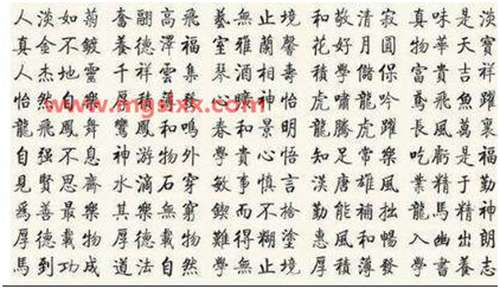 人淡如菊 奮翮高飛 藝無止境 和敬清寂 真味是淡
真金不鍍 養德澤福 室雅蘭馨 花好月圓 物華天寶
人杰地靈 千祥雲集 琴酒相壽 積學儲保 富貴吉祥
怡然自樂 厚積 心曠神怡 虎嘯龍吟 鳶飛魚躍
www.mgslxx.com
龍飛鳳舞 鸞鳳和鳴 春和景明 龍騰虎躍 長風萬裏
自强不息 神游物外 學貴心悟 知足常樂 吃虧是福
見賢思齋 水滴石穿 敏事慎言 漢唐雄風 業精于勤
為善最樂 其樂無窮 鍥而不捨 勤能補拙 龍馬精神
厚德載物 厚德載物 難得糊塗 惠風和暢 入幽出朗
馬到功成 道法自然 學無止境 厚積薄發 學書養志